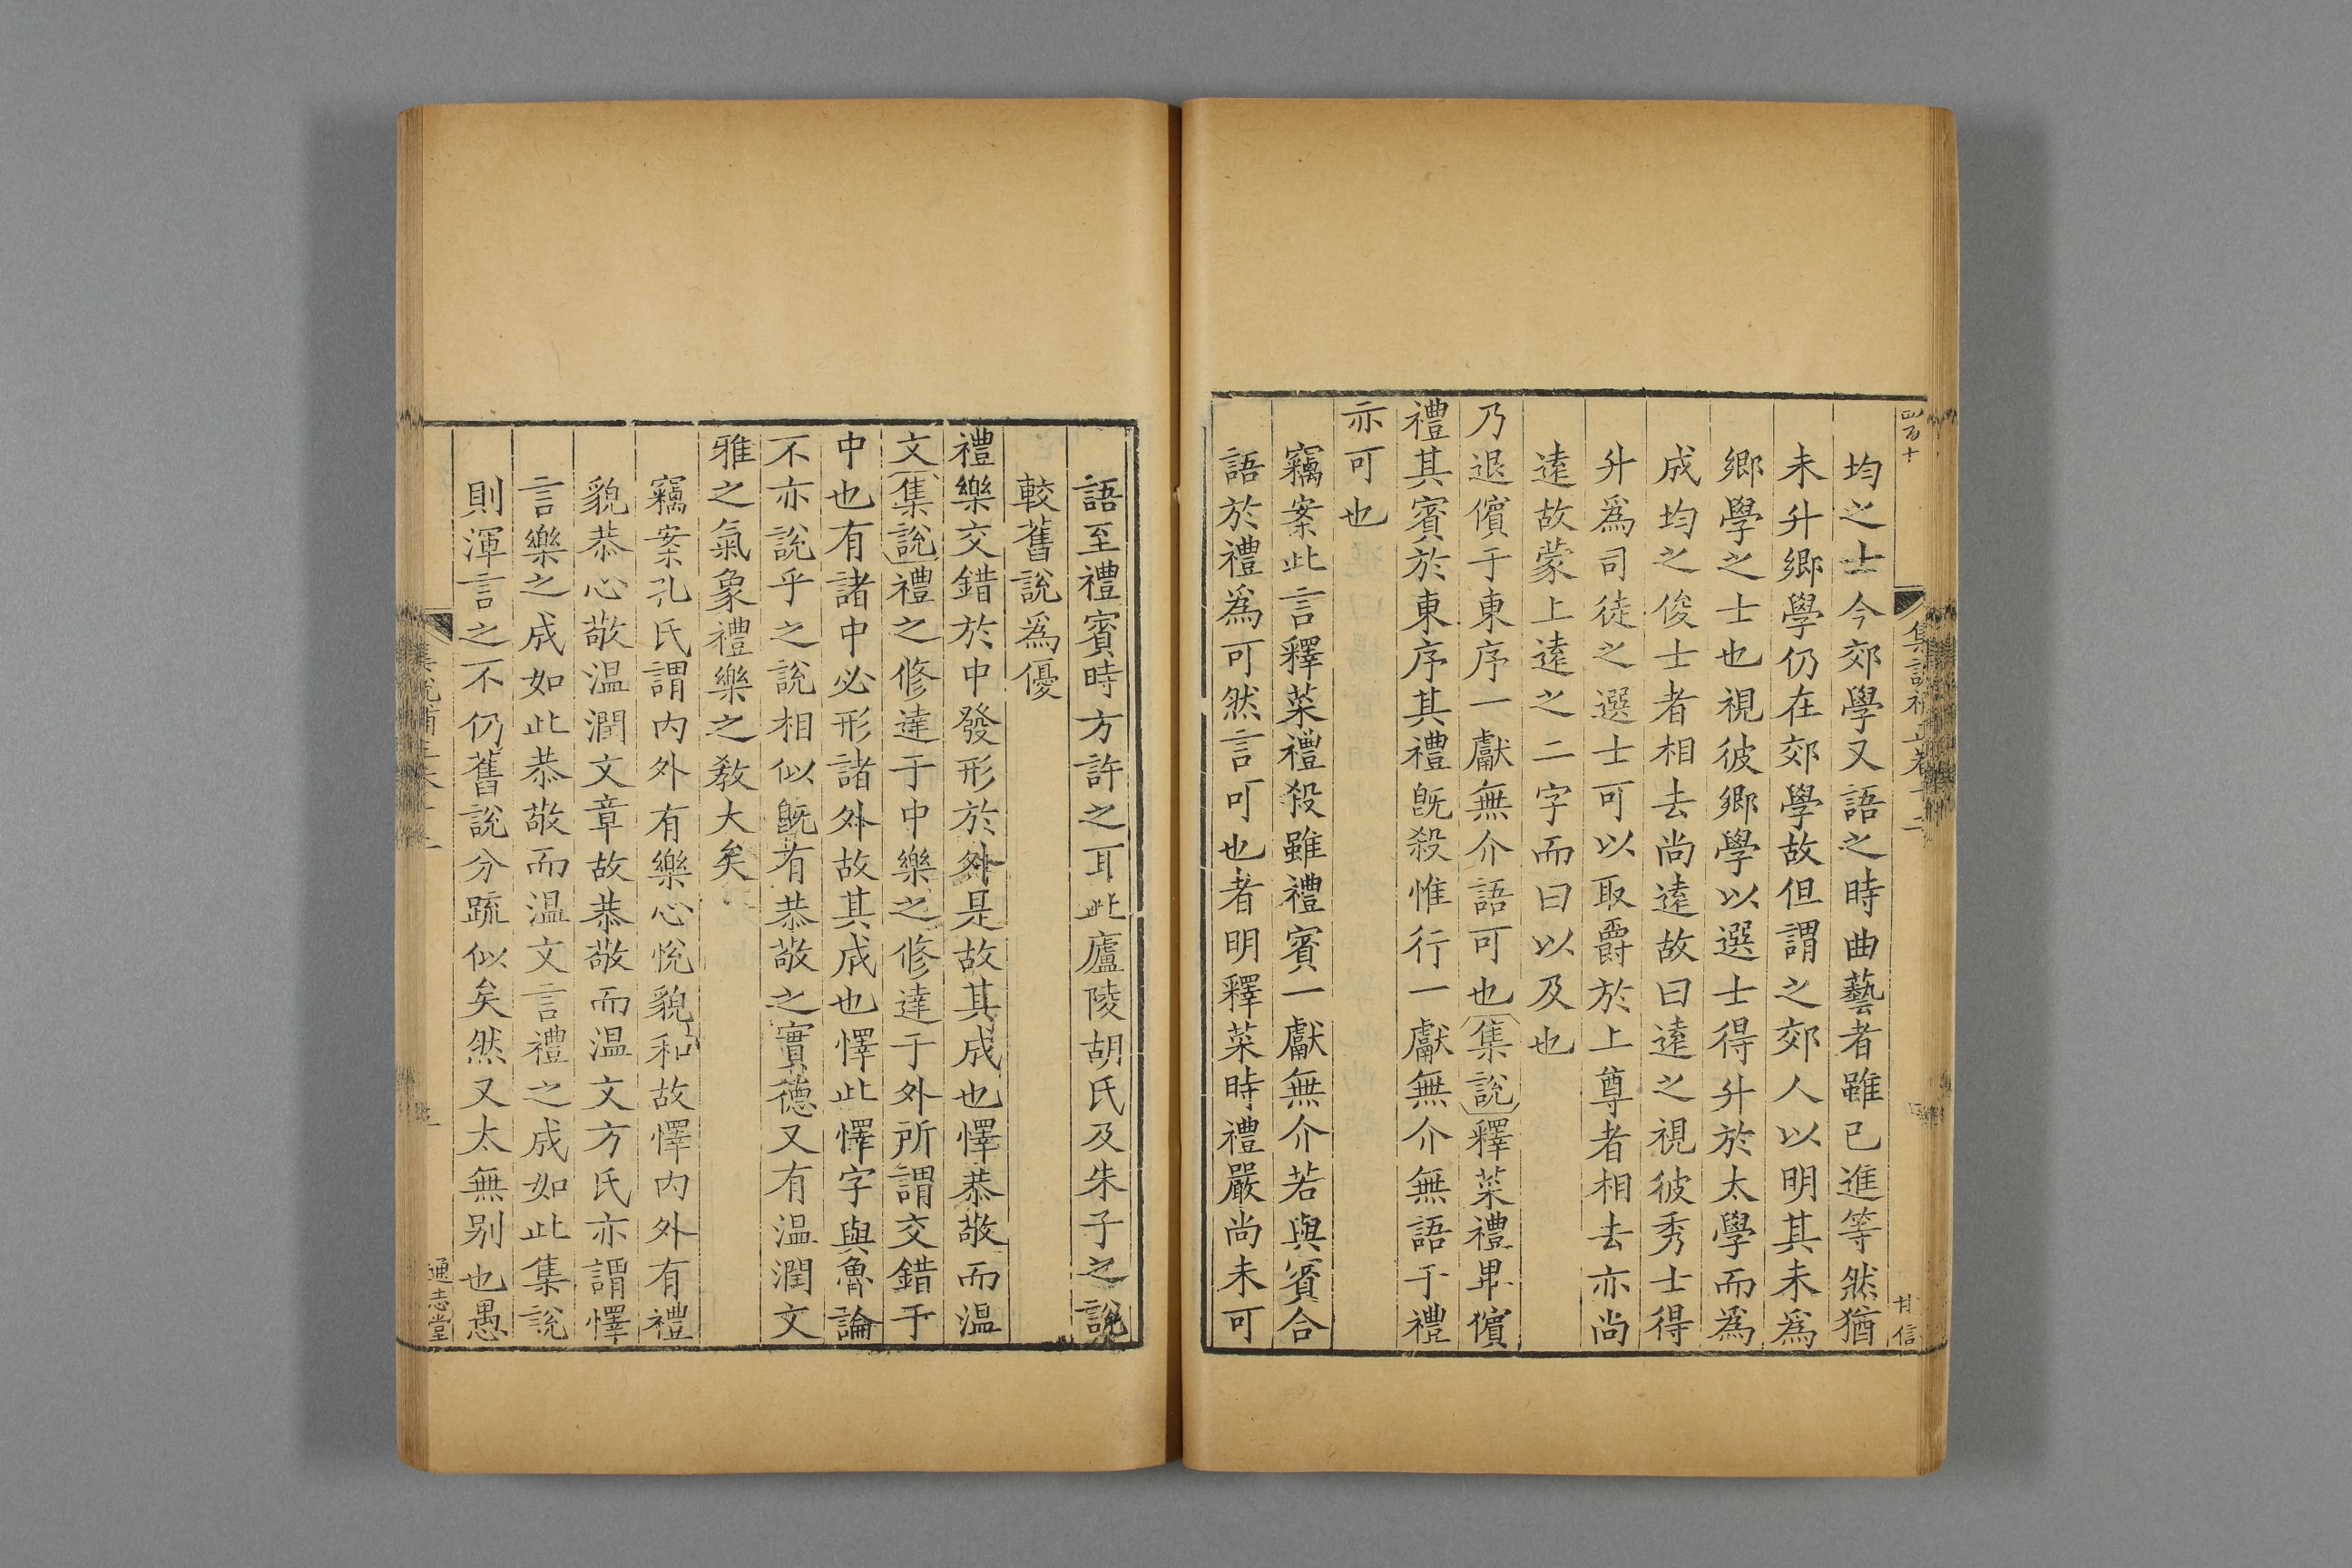 四百十
集說補正卷十二
甘信
均之士今郊學又語之時曲藝者雖已進等然猶
未升鄉學仍在郊學故但謂之郊人以明其未爲
鄉學之士也視彼鄉學以選士得升於太學而爲
成均之俊士者相去尚遠故曰遠之視彼秀士得
升爲司徒之選士可以取爵於上尊者相去亦尚
遠故蒙上遠之二字而曰以及也
乃退儐于東序一獻無介語可也集說釋菜禮畢儐
禮其賓於東序其禮旣殺惟行一獻無介無語于禮
亦可也
竊案此言釋菜禮殺雖禮賓一獻無介若與賓合
語於禮爲可然言可也者明釋菜時禮嚴尚未可
語至禮賓時方許之耳此廬陵胡氏及朱子之說
較舊說爲優
禮樂交錯於中發形於外是故其成也懌恭敬而温
文集說禮之修達于中樂之修達于外所謂交錯于
中也有諸中必形諸外故其成也懌此懌字與魯論
不亦說乎之說相似旣有恭敬之實德又有温潤文
雅之氣象禮樂之教大矣
竊案孔氏謂内外有樂心悅貌和故懌内外有禮
貌恭心敬温潤文章故恭敬而温文方氏亦謂懌
言樂之成如此恭敬而温文言禮之成如此集說
則渾言之不仍舊說分疏似矣然又太無别也愚
通志堂